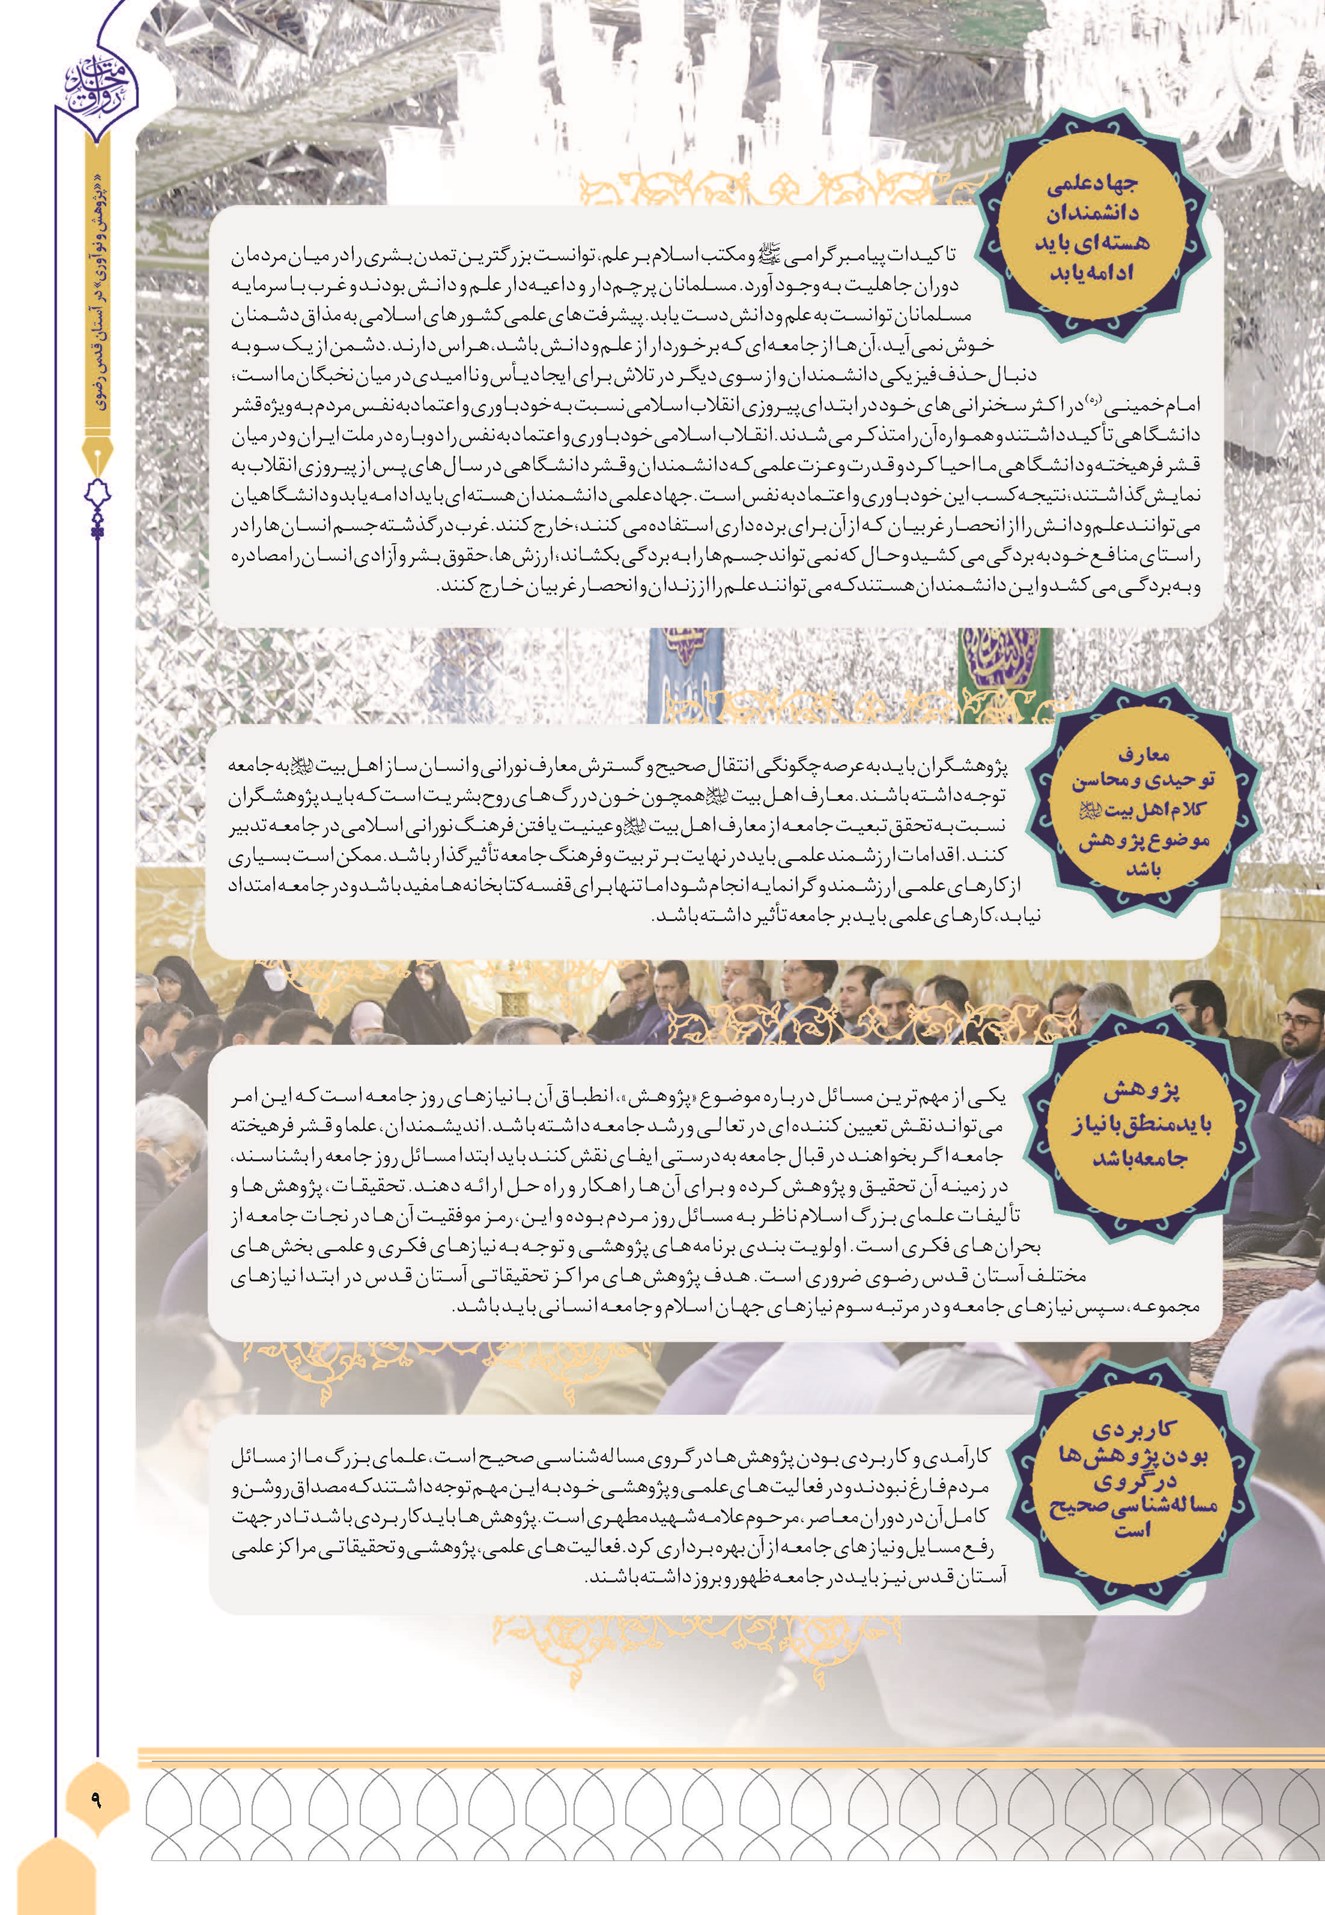 رواق خدمت
«پژوهش و نوآوری» در آستان قدس رضوی
جهاد علمی
دانشمندان
هسته‌ای باید
ادامه یابد
تاکیدات پیامبر گرامی ﷺ و مکتب اسلام بر علم، توانست بزرگترین تمدن بشری را در میان مردمان
دوران جاهلیت به وجود آورد. مسلمانان پرچم‌دار و داعیه‌دار علم و دانش بودند و غرب با سرمایه
مسلمانان توانست به علم و دانش دست یابد. پیشرفت‌های علمی کشورهای اسلامی به مذاق دشمنان
خوش نمی‌آید، آن‌ها از جامعه‌ای که برخوردار از علم و دانش باشد، هراس دارند. دشمن از یک سو به
دنبال حذف فیزیکی دانشمندان و از سوی دیگر در تلاش برای ایجاد یأس و ناامیدی در میان نخبگان ما است؛
امام خمینی (ره) در اکثر سخنرانی‌های خود در ابتدای پیروزی انقلاب اسلامی نسبت به خودباوری و اعتماد به نفس مردم به ویژه قشر
دانشگاهی تأکید داشتند و همواره آن را متذکر می‌شدند. انقلاب اسلامی خودباوری و اعتماد به نفس را دوباره در ملت ایران و در میان
قشر فرهیخته و دانشگاهی ما احیا کرد و قدرت و عزت علمی که دانشمندان و قشر دانشگاهی در سال‌های پس از پیروزی انقلاب به
نمایش گذاشتند؛ نتیجه کسب این خودباوری و اعتماد به نفس است. جهاد علمی دانشمندان هسته‌ای باید ادامه یابد و دانشگاهیان
می‌توانند علم و دانش را از انحصار غربیان که از آن برای برده‌داری استفاده می‌کنند؛ خارج کنند. غرب در گذشته جسم انسان‌ها را در
راستای منافع خود به بردگی می‌کشید و حال که نمی‌تواند جسم‌ها را به بردگی بکشاند؛ ارزش‌ها، حقوق بشر و آزادی انسان را مصادره
و به بردگی می‌کشد و این دانشمندان هستند که می‌توانند علم را از زندان و انحصار غربیان خارج کنند.
معارف
توحیدی و محاسن
کلام اهل بیت علیهم‌السلام
موضوع پژوهش
باشد
پژوهشگران باید به عرصه چگونگی انتقال صحیح و گسترش معارف نورانی و انسان ساز اهل بیت علیهم‌السلام به جامعه
توجه داشته باشند. معارف اهل بیت علیهم‌السلام همچون خون در رگ‌های روح بشریت است که باید پژوهشگران
نسبت به تحقق تبعیت جامعه از معارف اهل بیت علیهم‌السلام و عینیت یافتن فرهنگ نورانی اسلامی در جامعه تدبیر
کنند. اقدامات ارزشمند علمی باید در نهایت بر تربیت و فرهنگ جامعه تأثیرگذار باشد. ممکن است بسیاری
از کارهای علمی ارزشمند و گرانمایه انجام شود اما تنها برای قفسه کتابخانه‌ها مفید باشد و در جامعه امتداد
نیابد، کارهای علمی باید بر جامعه تأثیر داشته باشد.
پژوهش
باید منطق با نیاز
جامعه باشد
یکی از مهم‌ترین مسائل درباره موضوع «پژوهش»، انطباق آن با نیازهای روز جامعه است که این امر
می‌تواند نقش تعیین کننده‌ای در تعالی و رشد جامعه داشته باشد. اندیشمندان، علما و قشر فرهیخته
جامعه اگر بخواهند در قبال جامعه به درستی ایفای نقش کنند باید ابتدا مسائل روز جامعه را بشناسند،
در زمینه آن تحقیق و پژوهش کرده و برای آن‌ها راهکار و راه حل ارائه دهند. تحقیقات، پژوهش‌ها و
تألیفات علمای بزرگ اسلام ناظر به مسائل روز مردم بوده و این، رمز موفقیت آن‌ها در نجات جامعه از
بحران‌های فکری است. اولویت بندی برنامه‌های پژوهشی و توجه به نیازهای فکری و علمی بخش‌های
مختلف آستان قدس رضوی ضروری است. هدف پژوهش‌های مراکز تحقیقاتی آستان قدس در ابتدا نیازهای
مجموعه، سپس نیازهای جامعه و در مرتبه سوم نیازهای جهان اسلام و جامعه انسانی باید باشد.
کاربردی
بودن پژوهش‌ها
در گروی
مساله‌شناسی صحیح
است
کارآمدی و کاربردی بودن پژوهش‌ها در گروی مساله‌شناسی صحیح است، علمای بزرگ ما از مسائل
مردم فارغ نبودند و در فعالیت‌های علمی و پژوهشی خود به این مهم توجه داشتند که مصداق روشن و
کامل آن در دوران معاصر، مرحوم علامه شهید مطهری است. پژوهش‌ها باید کاربردی باشد تا در جهت
رفع مسایل و نیازهای جامعه از آن بهره برداری کرد. فعالیت‌های علمی، پژوهشی و تحقیقاتی مراکز علمی
آستان قدس نیز باید در جامعه ظهور و بروز داشته باشند.
۹